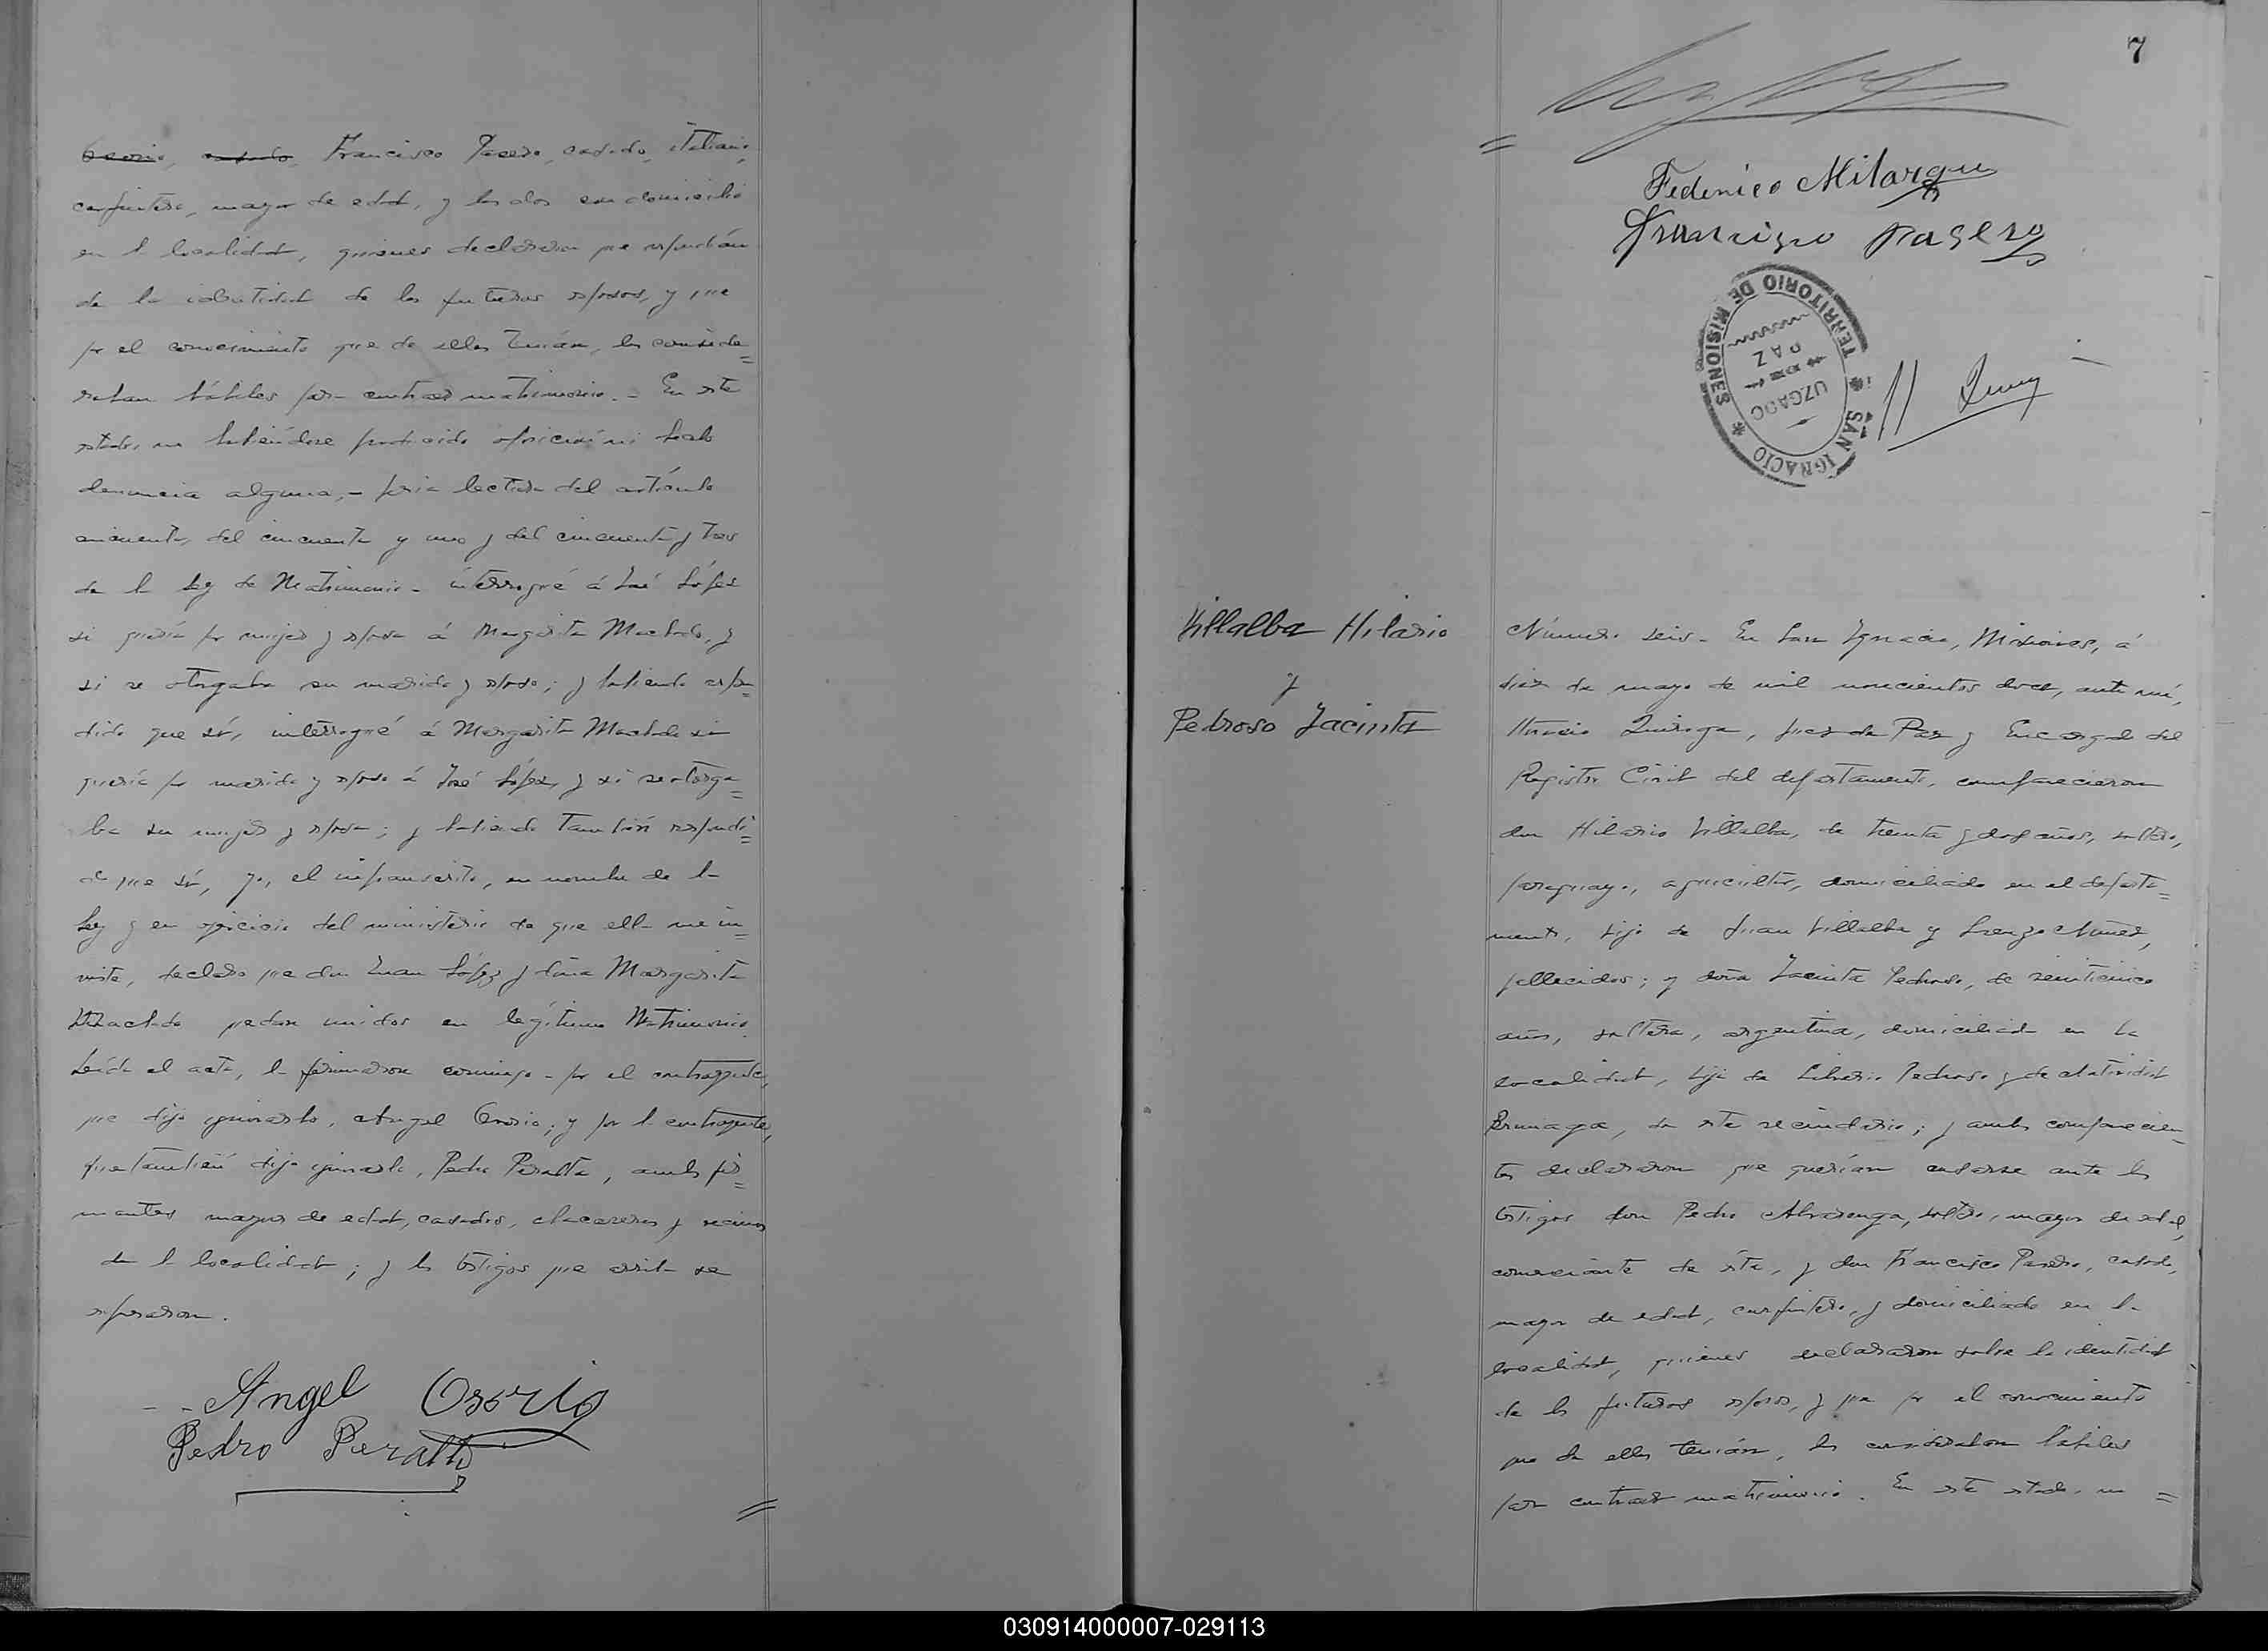 Osorio, casado, Francisco Pasero, casado, italiano,
carpintero, mayor de edad, y los dos con domicilio
en la localidad, quienes declararon que respondían
de la identidad de los futuros esposos, y que
por el conocimiento que de ellos tenían, los conside=
raban hábiles para contraer matrimonio. - En este
estado, no habiéndose producido oposición ni hecho
denuncia alguna, - previa lectura del artículo
cincuenta, del cincuenta y uno y del cincuenta y tres
de la Ley de Matrimonio - interrogué á José López
si quería por mujer y esposa á Margarita Machado, y
si se otorgaba su marido y esposo; y habiendo respon=
dido que sí, interrogué á Margarita Machado si
quería por marido y esposo á José López, y si se otorga=
ba su mujer y esposa; y habiendo también respondi=
do que sí, yo, el infrascrito, en nombre de la
Ley y en ejercicio del ministerio de que ella me in=
viste, declaro que don Juan López y doña Margarita
Machado quedan unidos en legítimo Matrimonio.
Leída el acta, la firmaron conmigo - por el contrayente,
que dijo ignorarlo, Angel Osorio; y por la contrayente,
que también dijo ignorarlo, Pedro Peralta, ambos fir=
mantes mayores de edad, casados, chacareros y vecinos
de la localidad; y los testigos que arriba se
expresaron.
Angel Osorio
Pedro Peralta
7
Federico Milarqu
Francisco Pasero
TERRITORIO DE MISIONES
SAN IGNACIO
UZGADO
DE
PAZ
Villalba Hilario
y
Pedroso Jacinta
Número seis - En San Ignacio, Misiones, á
diez de mayo de mil novecientos doce, ante mí,
Quiroga, Juez de Paz y Encargado del
Registro Civil del departamento, comparecieron
don Hilario Villalba, de treinta y dos años, soltero,
paraguayo, agricultor, domiciliado en el departa=
mento, hijo de Juan Villalba y Nuñez,
fallecidos; y doña Jacinta Pedroso, de veinticinco
años, soltera, argentina, domiciliada en la
localidad, hija de Liberio Pedroso y de Natividad
de este vecindario; y ambos comparecien=
tes declararon que querían casarse ante los
testigos don Pedro Alvarenga, soltero, mayor de edad,
comerciante de ésta, y don Francisco Pasero, casado,
mayor de edad, carpintero, y domiciliado en la
localidad, quienes declararon sobre la identidad
de los futuros esposos, y que por el conocimiento
que de ellos tenían, los consideraban hábiles
para contraer matrimonio. En este estado, no =
030914000007-029113